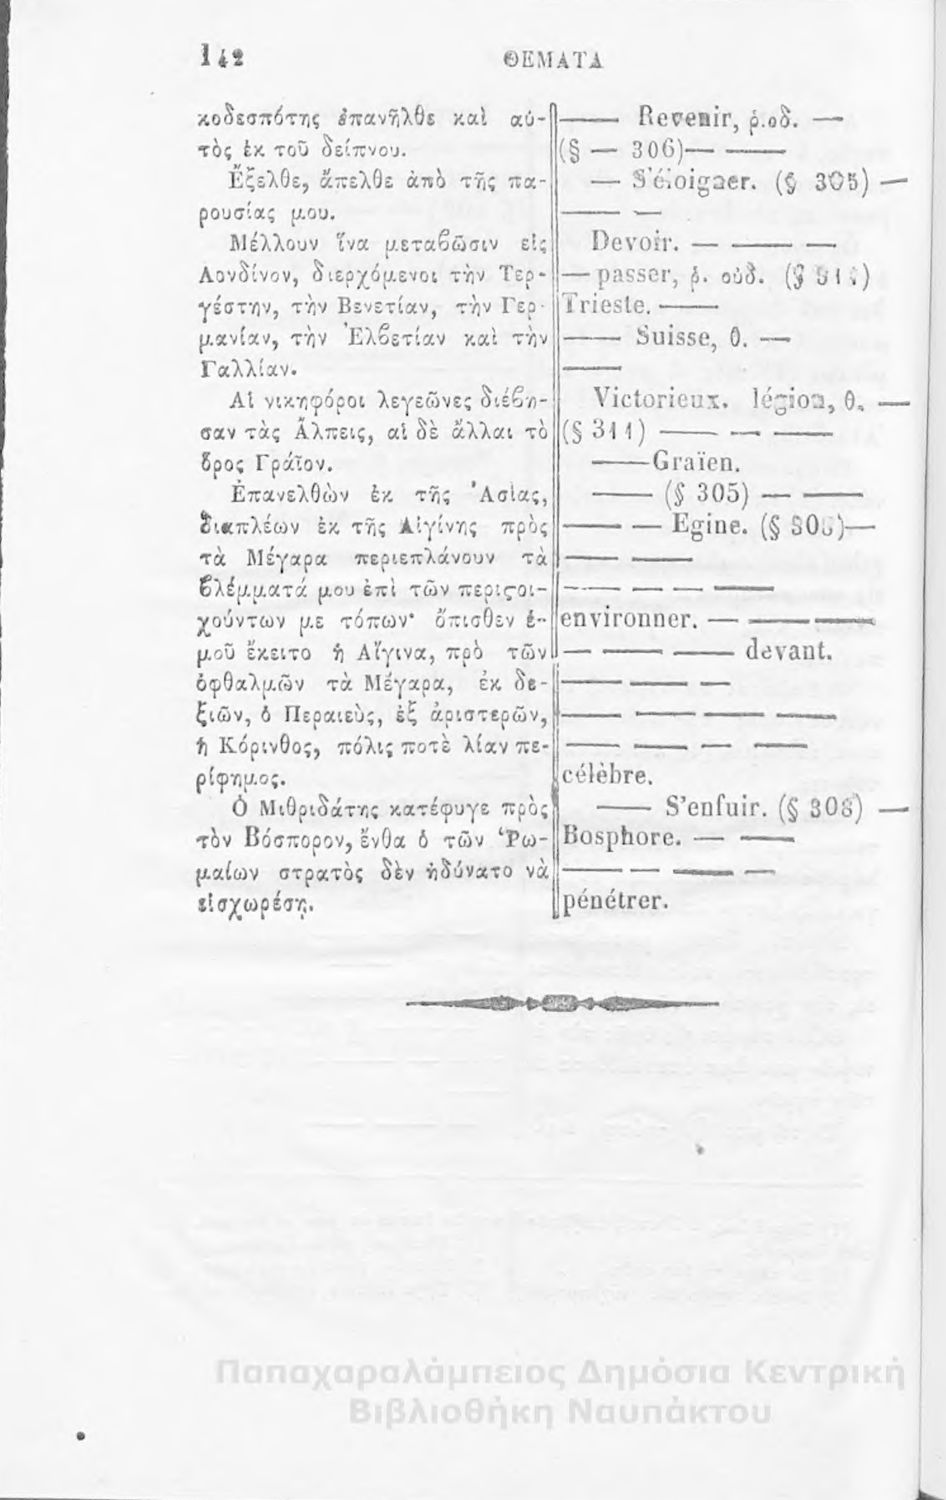 142 ΘΕΜΑΤΑ
κοδεσπότης ἐπανῆλθε καὶ αὐ-
τὸς ἐκ τοῦ δείπνου.
Ἔξελθε, ἄπελθε ἀπὸ τῆς πα-
ρουσίας μου.
Μέλλουν ἵνα μεταβῶσιν εἰς
Λονδίνον, διερχόμενοι τὴν Τερ-
γέστην, τὴν Βενετίαν, τὴν Γερ-
μανίαν, τὴν Ἐλβετίαν καὶ τὴν
Γαλλίαν.
Αἱ νικηφόροι λεγεῶνες διέβη-
σαν τὰς Ἄλπεις, αἱ δὲ ἄλλαι τὸ
ὄρος Γράϊον.
Ἐπανελθὼν ἐκ τῆς Ἀσίας,
διαπλέων ἐκ τῆς Αἰγίνης πρὸς
τὰ Μέγαρα περιεπλάνουν τὰ
βλέμματά μου ἐπὶ τῶν περιςοι-
χούντων με τόπων· ὄπισθεν ἐ-
μοῦ ἔκειτο ἡ Αἴγινα, πρὸ τῶν
ὀφθαλμῶν τὰ Μέγαρα, ἐκ δε-
ξιῶν, ὁ Περαιεὺς, ἐξ ἀριστερῶν,
ἡ Κόρινθος, πόλις ποτὲ λίαν πε-
ρίφημος.
Ὁ Μιθριδάτης κατέφυγε πρὸς
τὸν Βόσπορον, ἔνθα ὁ τῶν Ῥω-
μαίων στρατὸς δὲν ἠδύνατο νὰ
εἰσχωρέσῃ.
—— Revenir, ῥ.οδ. —
(§ — 306)— ——
— S'éloigner. (§ 305) —
—— —
Devoir. — —— —
— passer, ῥ. οὐδ. (§ )
Trieste. ——
—— Suisse, θ. —
——
Victorieux. légion, θ, —
(§ 311) —— — ——
——Graïen.
—— (§ 305) — ——
—— — Egine. (§ )—
—— ——
—— — — ——
environner. — —— ——
— —— —— devant.
—— —— —
—— —— —— ——
—— —— — ——
célèbre.
—— S'enfuir. (§ 308) —
Bosphore. — ——
—— — —— —
pénétrer.
Παπαχαραλάμπειος Δημόσια Κεντρική
Βιβλιοθήκη Ναυπάκτου